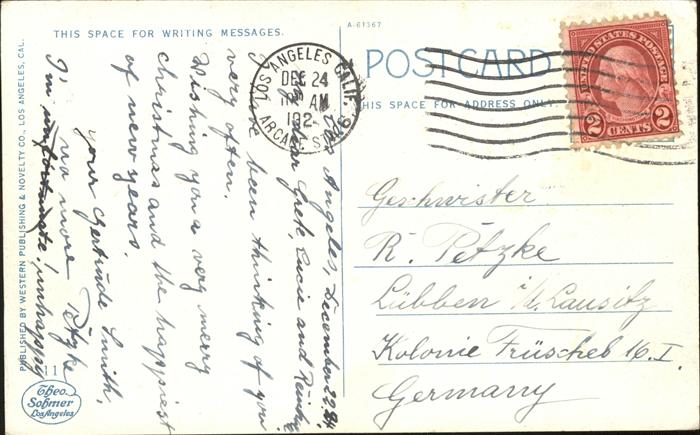 THIS SPACE FOR WRITING MESSAGES.
A-61367
POSTCARD
THIS SPACE FOR ADDRESS ONLY.
LOS ANGELES CALIF.
DEC 24
AM
192
ARCADE STA.
UNITED STATES POSTAGE
2 CENTS 2
Los Angeles, December 22. 24.
My dear Grete, Lucie and
I have been thinking of you
very often.
Wishing you a very merry
christmas and the happiest
of new years.
Your Gertrude Smith,
no more Petzke
I'm unfortunate! unhappy
Geschwister
R. Petzke
Lübben i/M. Lausitz
Kolonie Früscheb 16. I.
Germany
PUBLISHED BY WESTERN PUBLISHING & NOVELTY CO., LOS ANGELES, CAL.
11
Theo.
Sohmer
Los Angeles